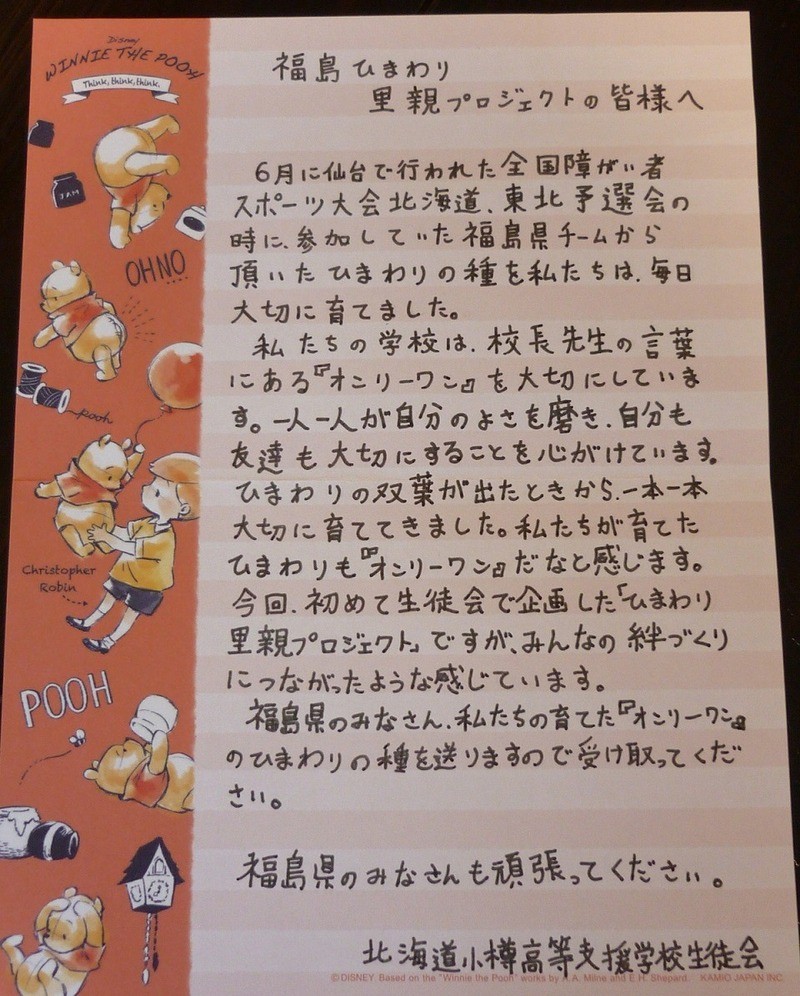 Disney
WINNIE THE POOH
Think, think, think.
JAM
OH NO
pooh
Christopher
Robin
POOH
福島ひまわり
里親プロジェクトの皆様へ
6月に仙台で行われた全国障がい者
スポーツ大会北海道、東北予選会の
時に、参加していた福島県チームから
頂いたひまわりの種を私たちは、毎日
大切に育てました。
私たちの学校は、校長先生の言葉
にある『オンリーワン』を大切にしていま
す。一人一人が自分のよさを磨き、自分も
友達も大切にすることを心がけています。
ひまわりの双葉が出たときから、一本一本
大切に育ててきました。私たちが育てた
ひまわりも『オンリーワン』だなと感じます。
今回、初めて生徒会で企画した「ひまわり
里親プロジェクト」ですが、みんなの絆づくり
につながったような感じています。
福島県のみなさん、私たちの育てた『オンリーワン』
のひまわりの種を送りますので受け取ってくだ
さい。
福島県のみなさんも頑張ってください。
北海道小樽高等支援学校生徒会
©DISNEY. Based on the "Winnie the Pooh" works by A. A. Milne and E. H. Shepard. KAMIO JAPAN INC.